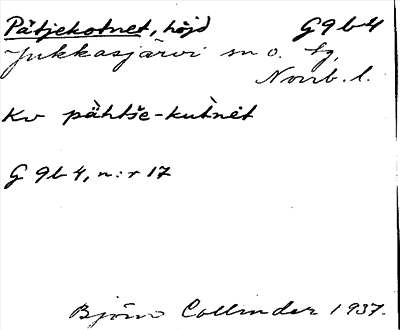 Pätjekotnet, höjd G9b4
Jukkasjärvi sn o. tg,
Norrb. l.
Kv pähtše-kutnēt
G 9b 4, n:r 17
Björn Collinder 1937.